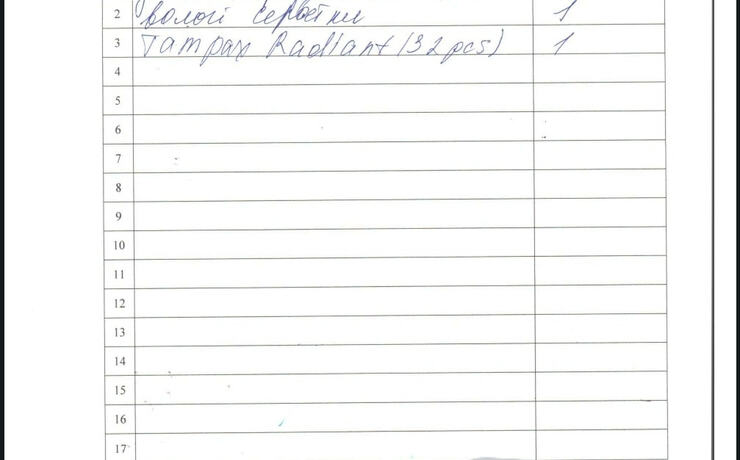 2 вологі серветки 1
3 Tampax Radiant (32 pcs) 1
4
5
6
7
8
9
10
11
12
13
14
15
16
17